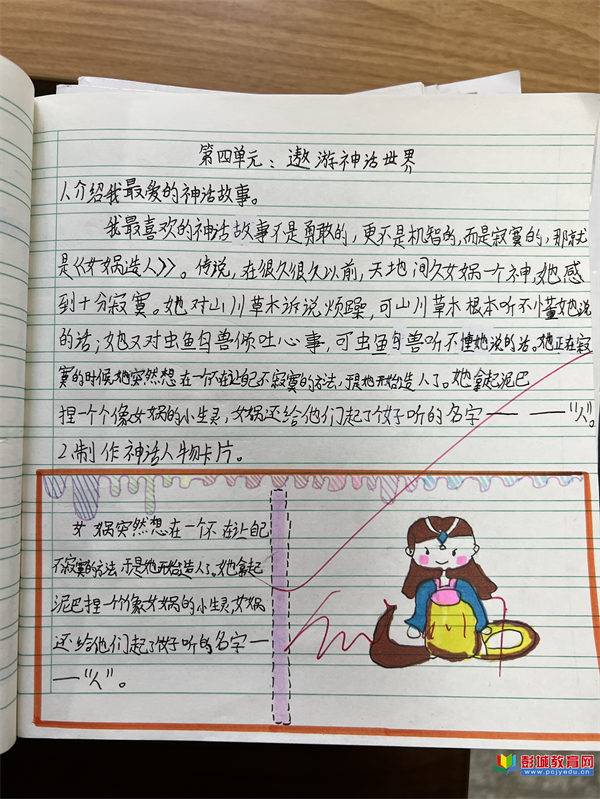 第四单元：遨游神话世界
1.介绍我最爱的神话故事。
我最喜欢的神话故事不是勇敢的，更不是机智的，而是寂寞的，那就
是《女娲造人》。传说，在很久很久以前，天地间久女娲一个神，她感
到十分寂寞。她对山川草木诉说烦躁，可山川草木根本听不懂她说
的话；她又对虫鱼鸟兽倾吐心事，可虫鱼鸟兽听不懂她说的话。她正在寂
寞的时候她突然想在一个不在让自己不寂寞的方法，于是她开始造人了。她拿起泥巴
捏一个个像女娲的小生灵，女娲还给他们起了个好听的名字—— ——“人”。
2.制作神话人物卡片。
女娲突然想在一个不在让自己
不寂寞的方法，于是她开始造人了。她拿起
泥巴捏一个个像女娲的小生灵，女娲
还给他们起了个好听的名字—
—“人”。
彭城教育网
www.pcjyedu.com